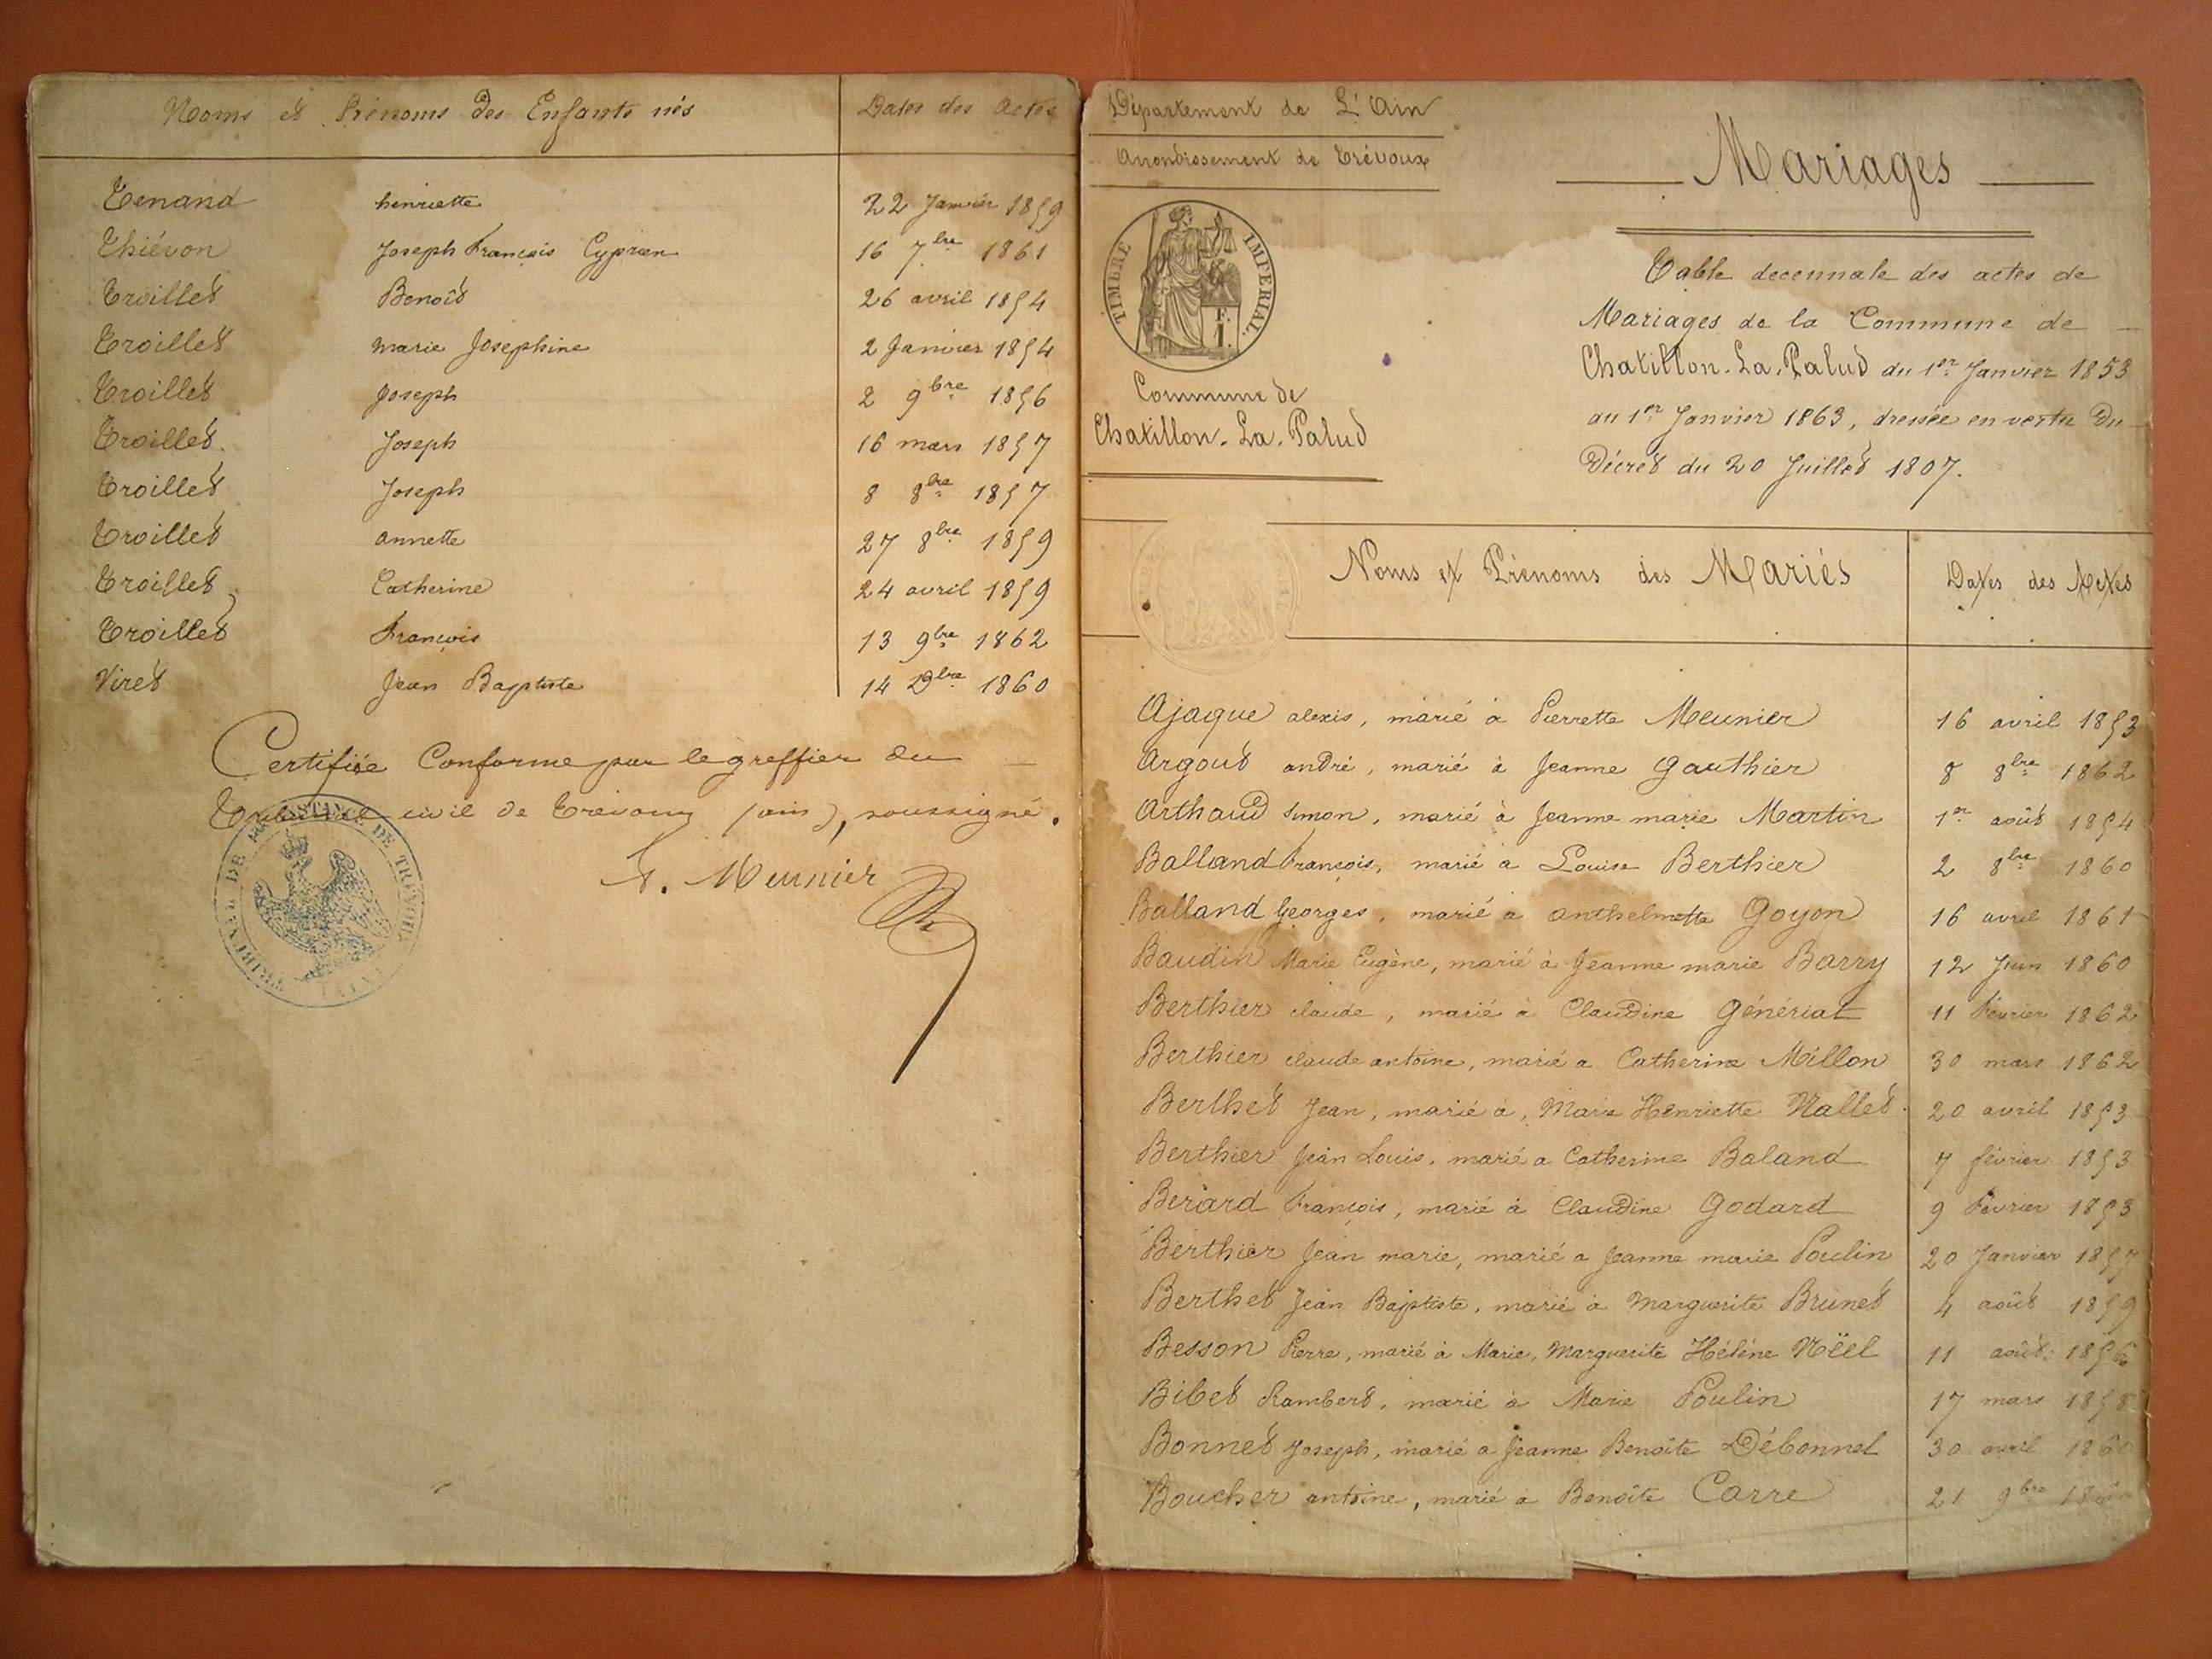 Noms et Prénoms des Enfants nés Dates des Actes
Tenand henriette 22 Janvier 1859
Thiévon Joseph François Cyprien 16 7bre 1861
Troillet Benoît 26 avril 1854
Troillet marie Josephine 2 Janvier 1854
Troillet Joseph 2 9bre 1856
Troillet Joseph 16 mars 1857
Troillet Joseph 8 8bre 1857
Troillet annette 27 8bre 1859
Troillet Catherine 24 avril 1859
Troillet François 13 9bre 1862
Viret Jean Baptiste 14 Dbre 1860
Certifiée Conforme par le greffier du
Tribunal civil de Trévoux (ain), soussigné.
Meunier
TRIBUNAL DE DE TRÉVOUX
Département de L'Ain
Arrondissement de Trévoux
TIMBRE IMPERIAL
F.
1.
Commune de
Chatillon-La-Palud
Mariages
Table decennale des actes de
Mariages de la Commune de
Chatillon-La-Palud du 1er Janvier 1853
au 1er Janvier 1863, dressée en vertu du
Décret du 20 Juillet 1807.
Noms et Prénoms des Mariés Dates des Actes
Ajaque alexis, marié à Pierrette Meunier 16 avril 1853
Argout andré, marié à Jeanne Gauthier 8 8bre 1862
Arthaud Simon, marié à Jeanne marie Martin 1er août 1854
Balland François, marié a Louise Berthier 2 8bre 1860
Balland Georges, marié a anthelmette Goyon 16 avril 1861
Baudin Marie Eugène, marié à Jeanne marie Barry 12 Juin 1860
Berthier claude, marié à Claudine Génériat 11 Février 1862
Berthier claude antoine, marié a Catherine Millon 30 mars 1862
Berthet Jean, marié à, Marie Henriette Nallet. 20 avril 1853
Berthier Jean Louis, marié a Catherine Baland 7 février 1853
Berard François, marié à Claudine Godard 9 Février 1853
Berthier Jean marie, marié a Jeanne marie Poulin 20 Janvier
Berthet Jean Baptiste, marié à Marguerite Brunet 4 août 1859
Besson Pierre, marié à Marie, Marguerite Hélène Nëel 11 août 1856
Bibet Rambert, marié à Marie Poulin 17 mars 1858
Bonnet Joseph, marié a Jeanne Benoîte Débonnet 30 avril 1860
Boucher antoine, marié à Benoîte Carre 21 9bre